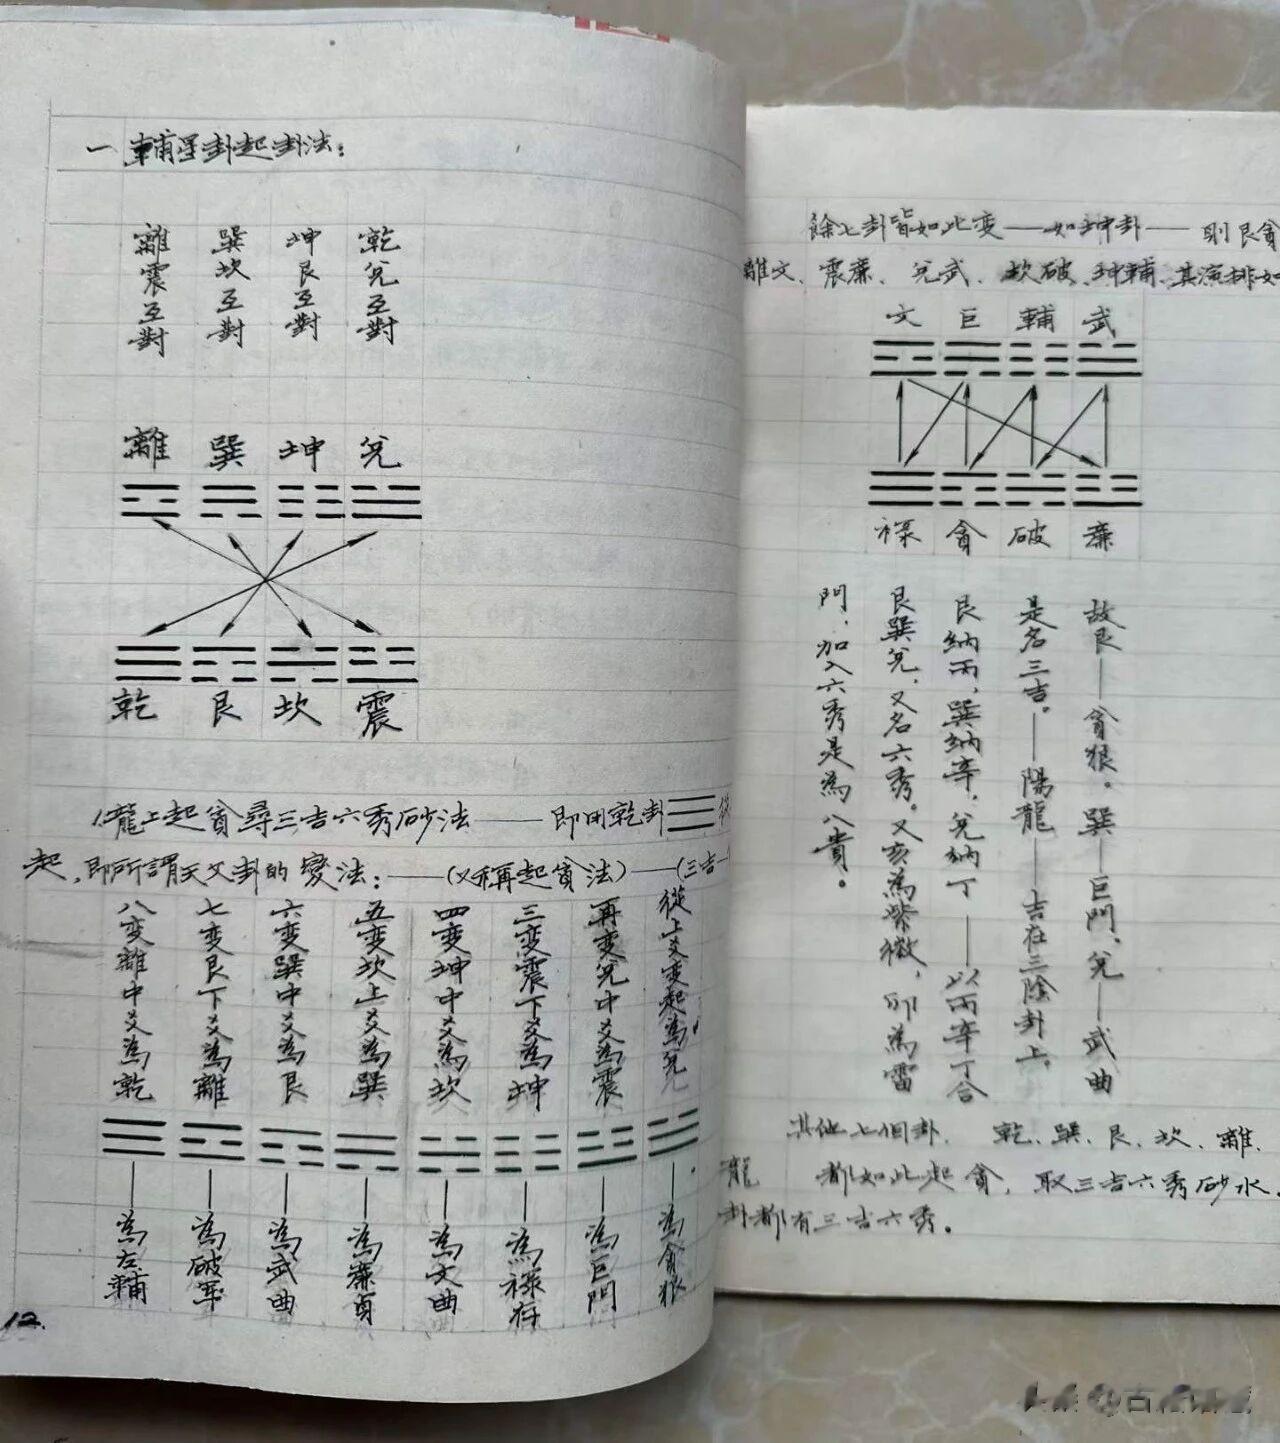 一 輔星卦起卦法：
乾兌互對
坤艮互對
巽坎互對
離震互對
離 巽 坤 兌
乾 艮 坎 震
1.龍上起貪尋三吉六秀砂法——即用乾卦☰從
起，即所謂天父卦的變法：——（又稱起貪法）——（三吉一
從上爻变起為兌
再变兌中爻為震
三变震下爻為坤
四变坤中爻為坎
五变坎上爻為巽
六变巽中爻為艮
七变艮下爻為離
八变離中爻為乾
——為貪狼
——為巨門
——為祿存
——為文曲
——為廉貞
——為武曲
——為破軍
——為左輔
12.
餘七卦皆如此变——如坤卦——則艮貪
離文、震廉、兌武、坎破、坤輔、其演排如
文 巨 輔 武
祿 貪 破 廉
故艮——貪狼。巽——巨門、兌——武曲
是名三吉。——陽龍——吉在三陰卦上。
艮納丙，巽納辛，兌納丁——以丙辛丁合
艮巽兌，又名六秀。又亥為紫微，卯為雷
門，加入六秀是為八貴。
其他七個卦、乾、巽、艮、坎、離、
龍 都如此起貪，取三吉六秀砂水。
卦都有三吉六秀。